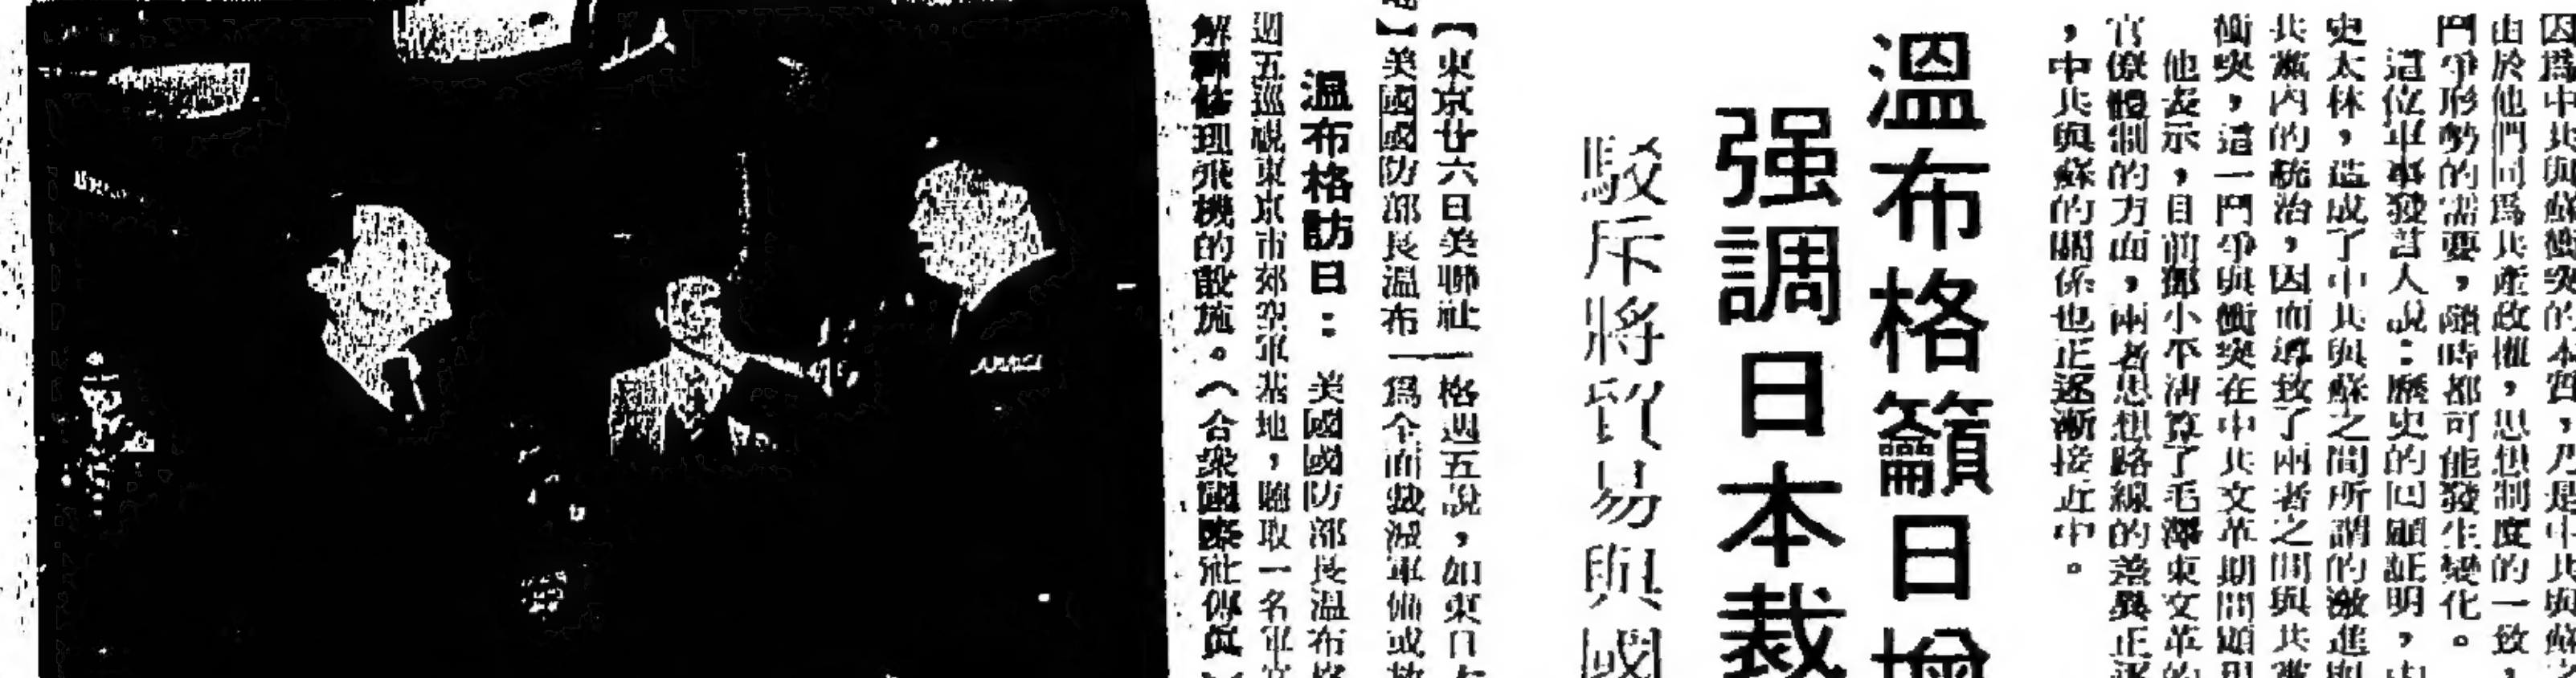 因爲中共與蘇衝突的本質，乃是中共與蘇
由於他們同爲共產政權，思想制度的一致，
鬥爭形勢的需要，隨時都可能發生變化。
這位軍事發言人說：歷史的回顧証明，由
史太林，造成了中共與蘇之間所謂的激進與
共黨內的統治，因而導致了兩者之間與共黨
衝突，這一鬥爭與衝突在中共文革期間更
他表示，目前鄧小平清算了毛澤東文革的
官僚體制的方面，兩者思想路線的差異正逐
，中共與蘇的關係也正逐漸接近中。
溫布格籲日增
强調日本裁
駁斥將貿易與國
【東京廿六日美聯社
】美國國防部長溫布
格週五說，如果日本
爲全面裁減軍備或放
溫布格訪日：
美國國防部長溫布格
週五巡視東京市郊空軍基地，聽取一名軍官
解釋修理飛機的設施。（合衆國際社傳真）